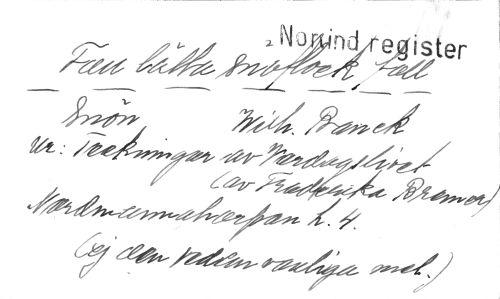 Nomind register
Fall lätta snöflock fall
Snön Wilh. Banck
ur: Teckningar av Vardagslivet
(av Fredrika Bremer)
h. 4.
(ej den vedervanliga mel.)